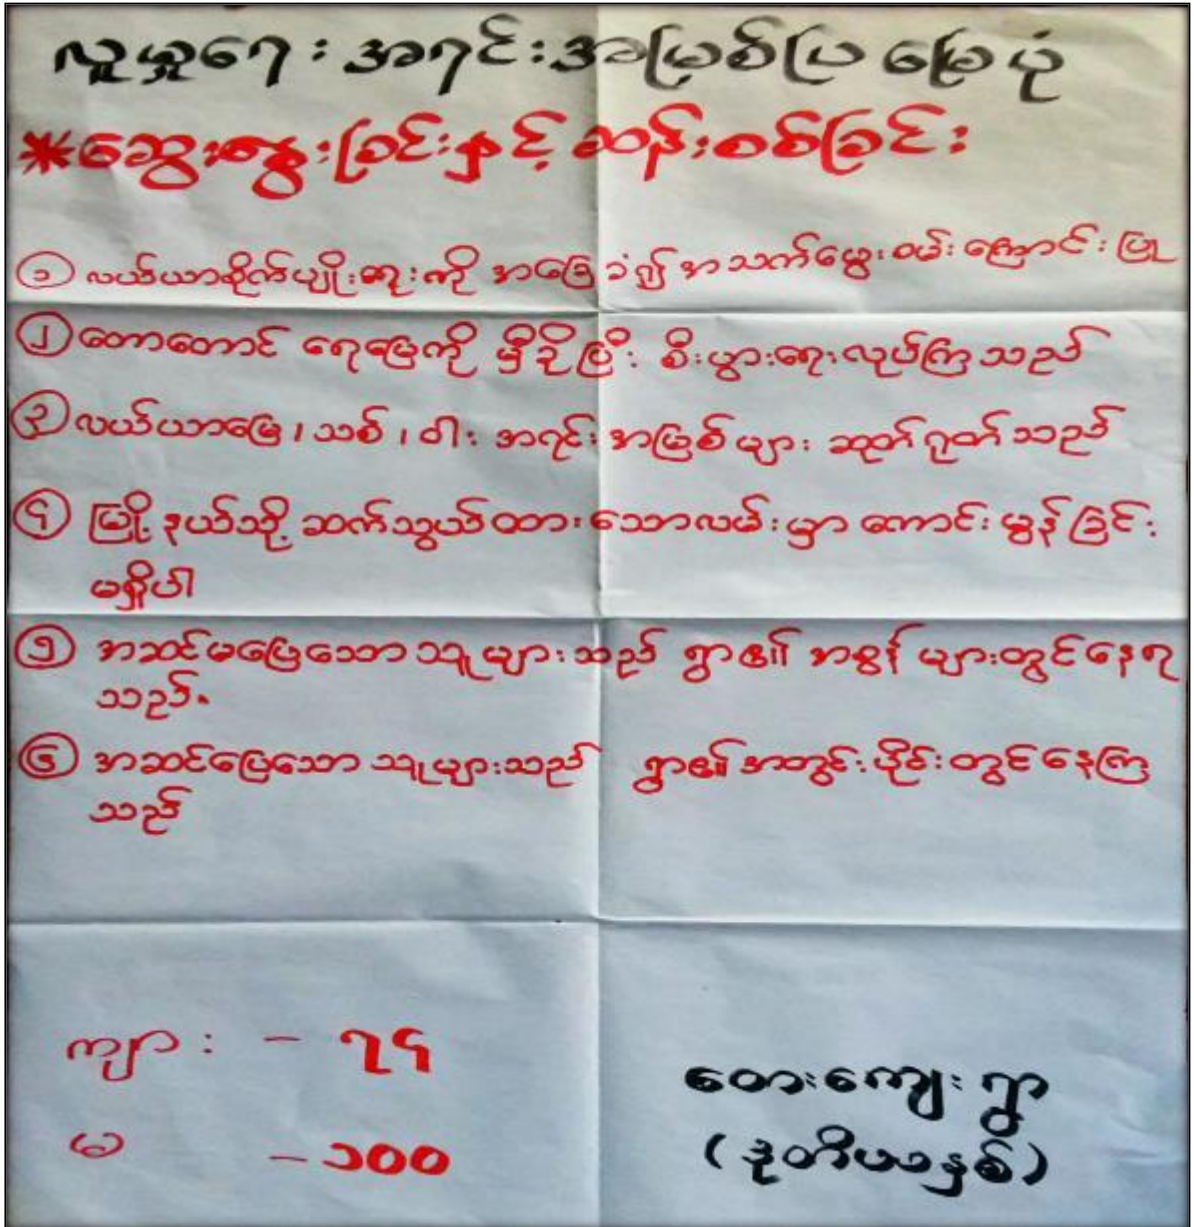 လူမှုရေး အရင်းအမြစ်ပြ မြေပုံ
*ဆွေးနွေးခြင်းနှင့် ဆန်းစစ်ခြင်း
၁ လယ်ယာစိုက်ပျိုးရေးကို အခြေခံ၍ အသက်မွေးဝမ်းကြောင်းပြု
၂ တောတောင် ရေမြေကို မှီခိုပြီး စီးပွားရေးလုပ်ကြသည်
၃ လယ်ယာမြေ၊ သစ်၊ ဝါး အရင်းအမြစ်များ ဆုတ်ရုတ်သည်
၄ မြို့နယ်သို့ ဆက်သွယ်ထားသောလမ်းမှာ ကောင်းမွန်ခြင်း
မရှိပါ
၅ အဆင်မပြေသောသူများသည် ရွာ၏ အစွန်များတွင်နေရ
သည်။
၆ အဆင်ပြေသောသူများသည် ရွာ၏ အတွင်းပိုင်းတွင်နေကြ
သည်
ကျား - ၇၄
မ - ၁၀၀
တေးကျေးရွာ
(ဒုတိယနှစ်)